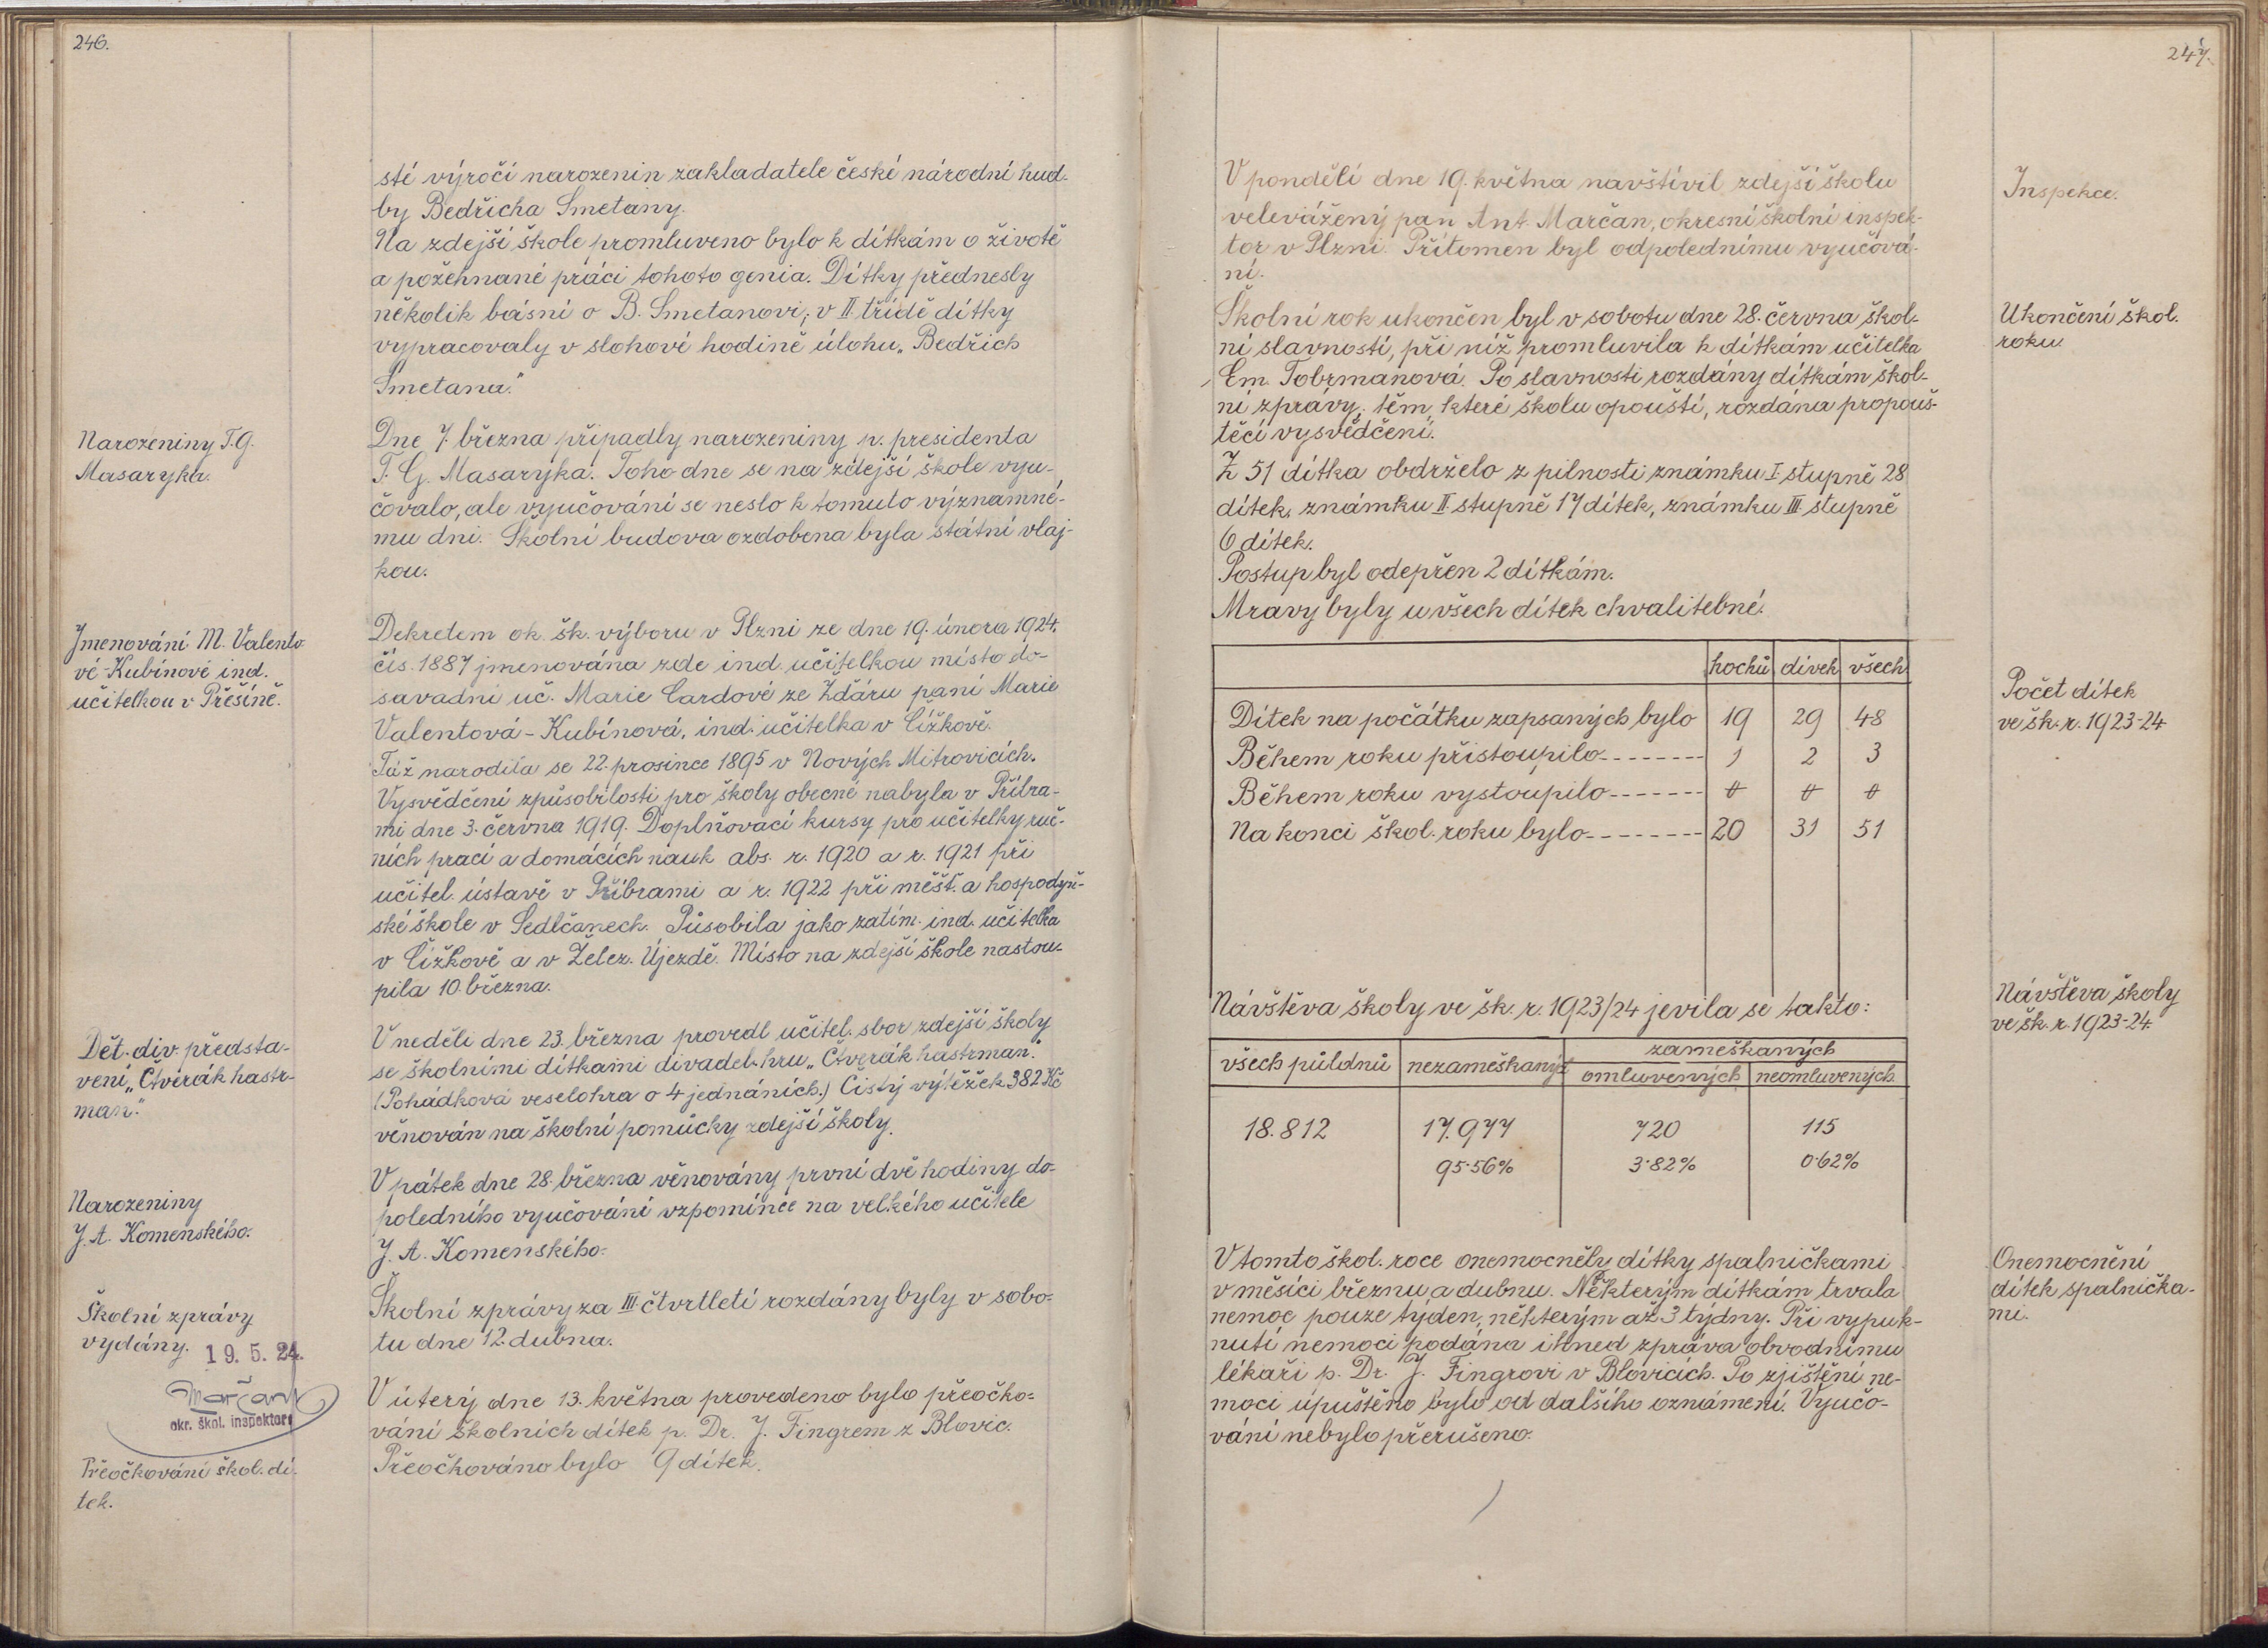 246.
stí výročí narozenin zakladatele české národní hud-
by Bedřicha Smetany.
Na zdejší škole promluveno bylo k dítkám o životě
a požehnané práci tohoto genia. Dítky přednesly
několik básní o B. Smetanovi; v II. třídě dítky
vypracovaly v slohové hodině úlohu „Bedřich
Smetana."
Narozeniny T. G.
Masaryka.
Dne 7. března připadly narozeniny p. presidenta
T. G. Masaryka. Toho dne se na zdejší škole vyu-
čovalo, ale vyučování se neslo k tomuto významné-
mu dni. Školní budova ozdobena byla státní vlaj-
kou.
Jmenování M. Valento-
vé-Kubínové ind.
učitelkou v Přešíně.
Dekretem ok. šk. výboru v Plzni ze dne 19. února 1924.
čís. 1887 jmenována zde ind. učitelkou místo do-
savadní uč. Marie Cardové ze Žďáru paní Marie
Valentová-Kubínová, ind. učitelka v Čížkově.
Táž narodila se 22. prosince 1895 v Nových Mitrovicích.
Vysvědčení způsobilosti pro školy obecné nabyla v Příbra-
mi dne 3. června 1919. Doplňovací kursy pro učitelky ruč-
ních prací a domácích nauk abs. r. 1920 a r. 1921 při
učitel. ústavě v Příbrami a r. 1922 při měšť. a hospodyň-
ské škole v Sedlčanech. Působila jako zatím. ind. učitelka
v Čížkově a v Želez. Újezdě. Místo na zdejší škole nastou-
pila 10. března.
Dět. div. předsta-
vení „Čtverák hastr-
man."
V neděli dne 23. března provedl učitel. sbor zdejší školy
se školními dítkami divadel. hru „Čtverák hastrman."
(Pohádková veselohra o 4 jednáních.) Čistý výtěžek 382 Kč
věnován na školní pomůcky zdejší školy.
Narozeniny
J. A. Komenského.
V pátek dne 28. března věnovány první dvě hodiny do-
poledního vyučování vzpomínce na velkého učitele
J. A. Komenského.
Školní zprávy
vydány.
19. 5. 24.
Marčan
okr. škol. inspektor
Školní zprávy za III. čtvrtletí rozdány byly v sobo-
tu dne 12. dubna.
Přeočkování škol. dí-
tek.
V úterý dne 13. května provedeno bylo přeočko-
vání školních dítek p. Dr. J. Fingrem z Blovic.
Přeočkováno bylo 9 dítek.
247.
V pondělí dne 19. května navštívil zdejší školu
velevážený pan Ant. Marčan, okresní školní inspek-
tor v Plzni. Přítomen byl odpolednímu vyučová-
ní.
Inspekce.
Školní rok ukončen byl v sobotu dne 28. června škol-
ní slavností, při níž promluvila k dítkám učitelka
Em. Tobrmanová. Po slavnosti rozdány dítkám škol-
ní zprávy; těm, které školu opouští, rozdána propouš-
těcí vysvědčení.
Ukončení škol.
roku.
Z 51 dítka obdrželo z pilnosti známku I. stupně 28
dítek, známku II. stupně 17 dítek, známku III. stupně
6 dítek.
Postup byl odepřen 2 dítkám.
Mravy byly u všech dítek chvalitebné.
hochů dívek všech
Dítek na počátku zapsaných bylo 19 29 48
Během roku přistoupilo-------- 1 2 3
Během roku vystoupilo------- 0 0 0
Na konci škol. roku bylo-------- 20 31 51
Počet dítek
ve šk. r. 1923-24
Návštěva školy ve šk. r. 1923/24 jevila se takto:
Návštěva školy
ve šk. r. 1923-24.
všech půldnů nezameškaných zameškaných
omluvených neomluvených
18.812 17.977 720 115
95·56% 3·82% 0·62%
V tomto škol. roce onemocněly dítky spalničkami
v měsíci březnu a dubnu. Některým dítkám trvala
nemoc pouze týden, některým až 3 týdny. Při vypuk-
nutí nemoci podána ihned zpráva obvodnímu
lékaři p. Dr. J. Fingrovi v Blovicích. Po zjištění ne-
moci upuštěno bylo od dalšího oznámení. Vyučo-
vání nebylo přerušeno.
Onemocnění
dítek spalnička-
mi.